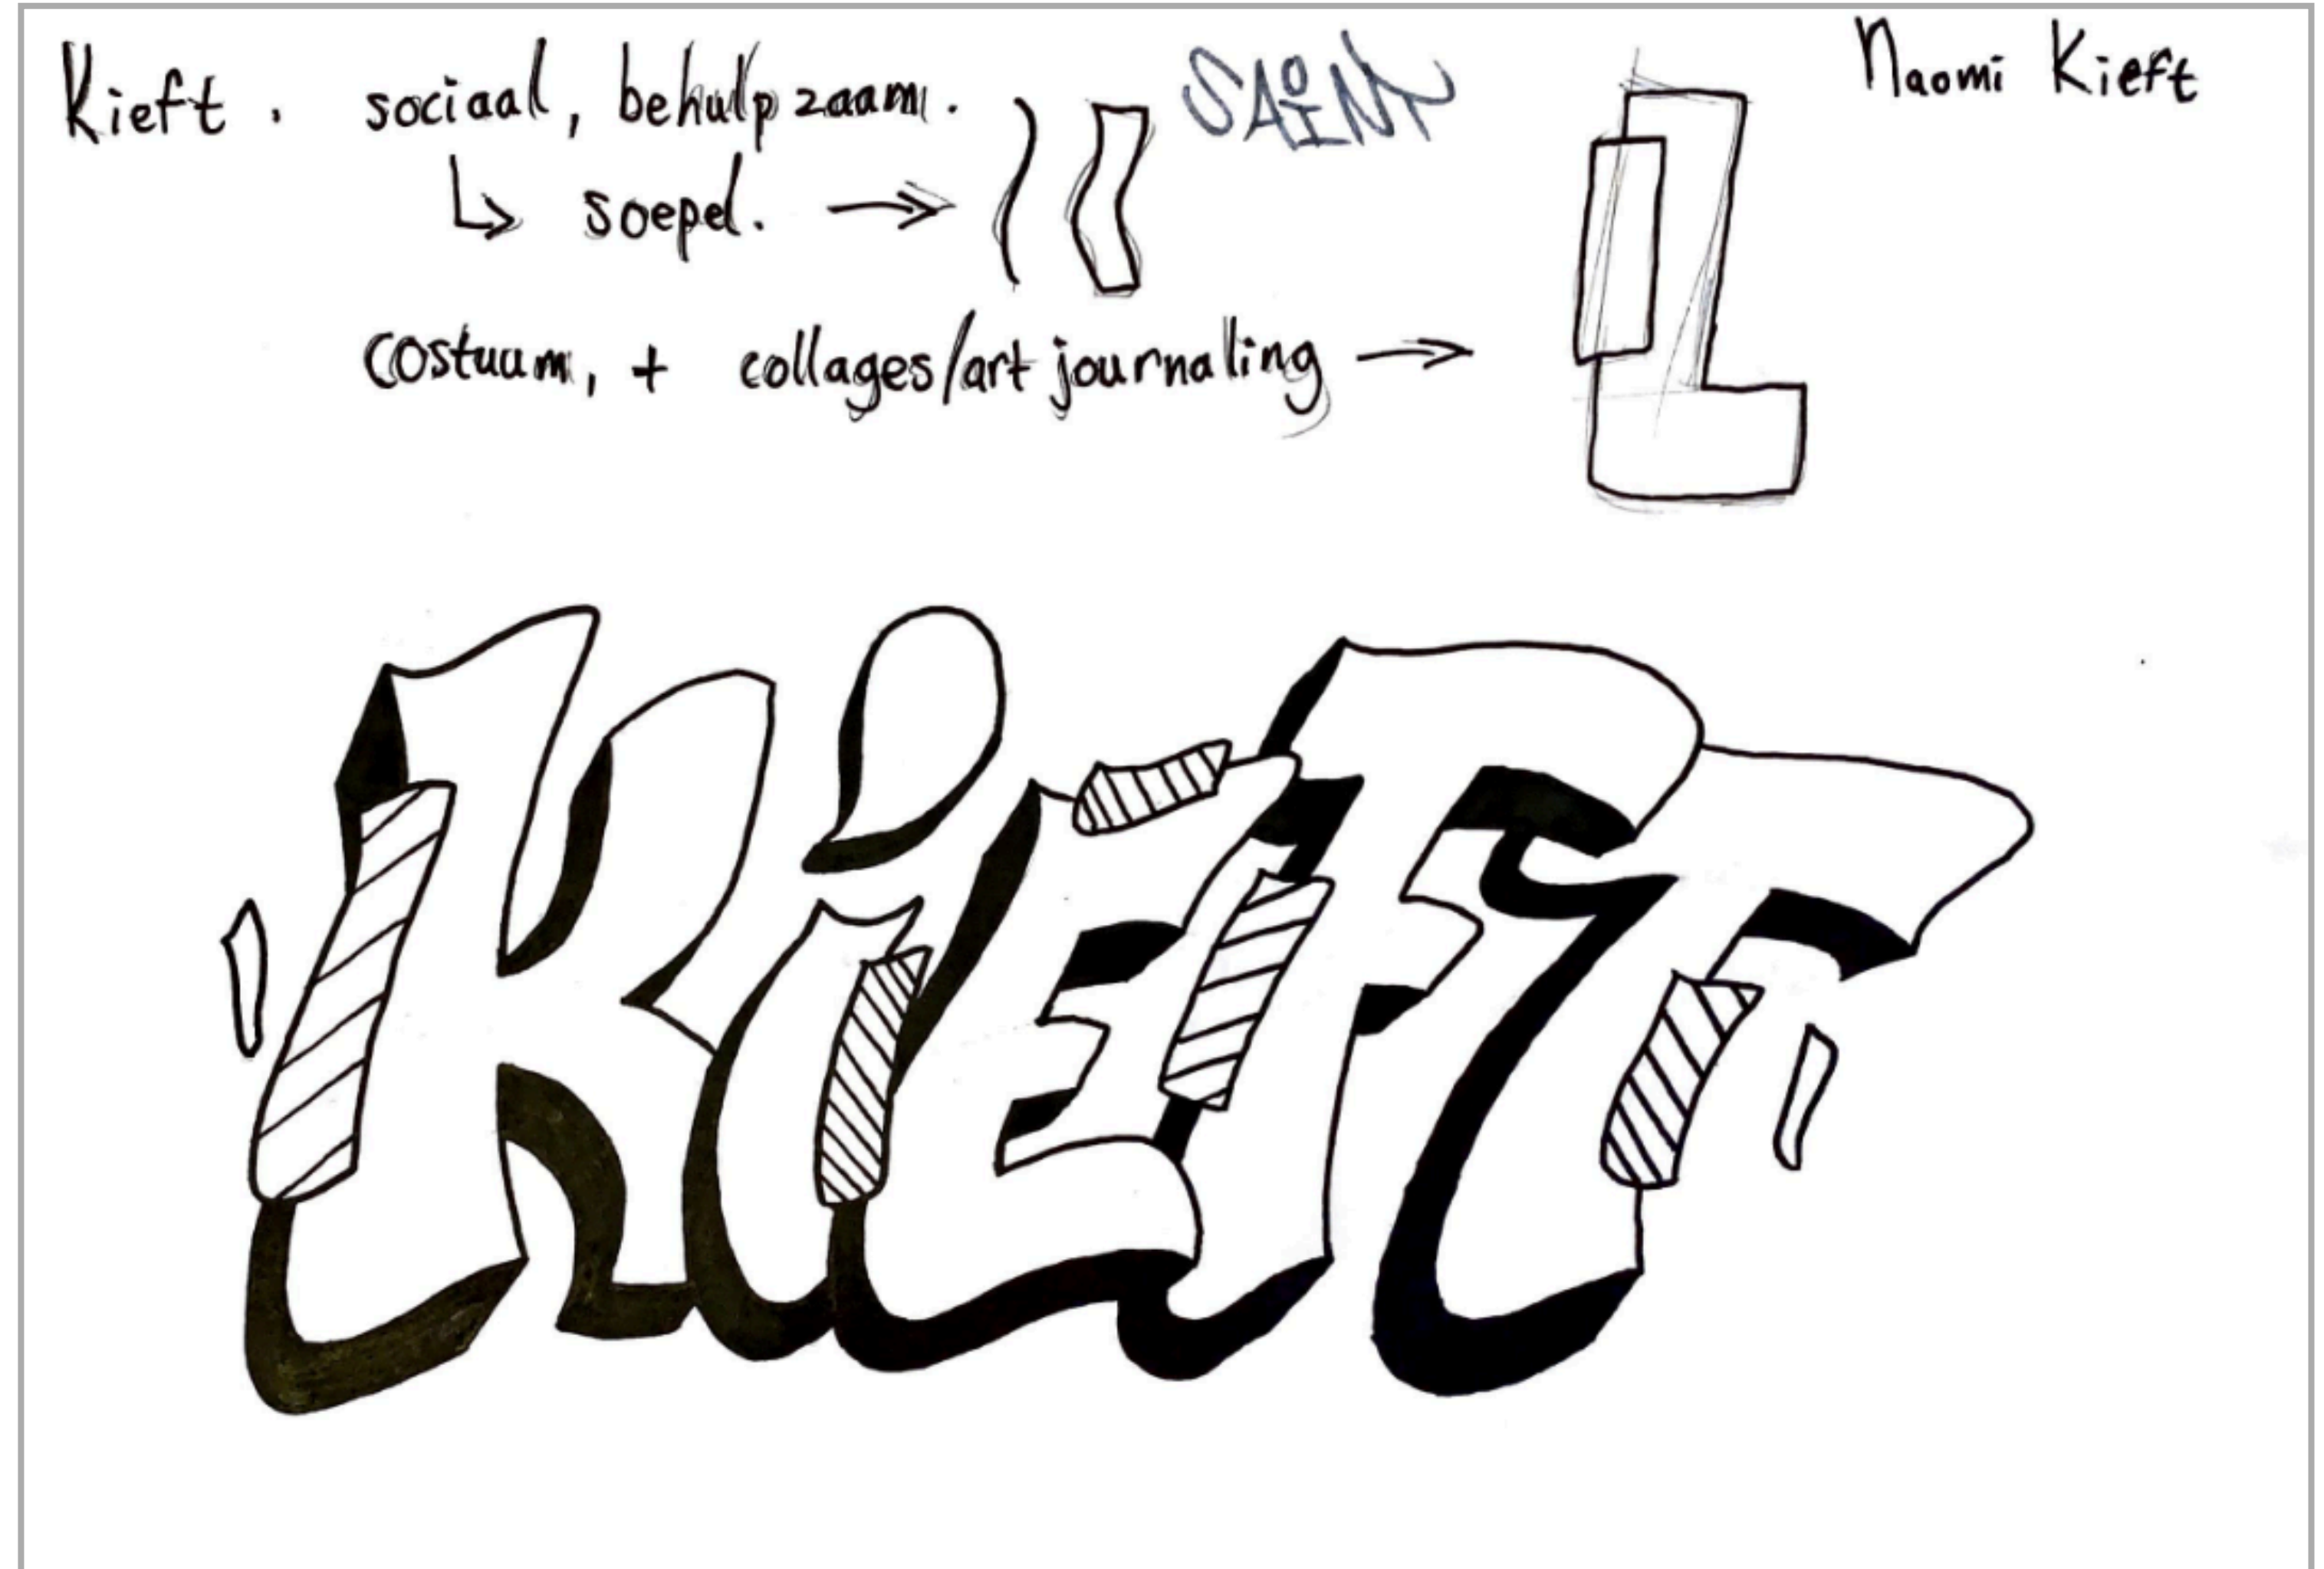 Kieft. sociaal, behulpzaam. SAiNT Naomi Kieft
soepel.
costuum, + collages/art journaling
KiEFT